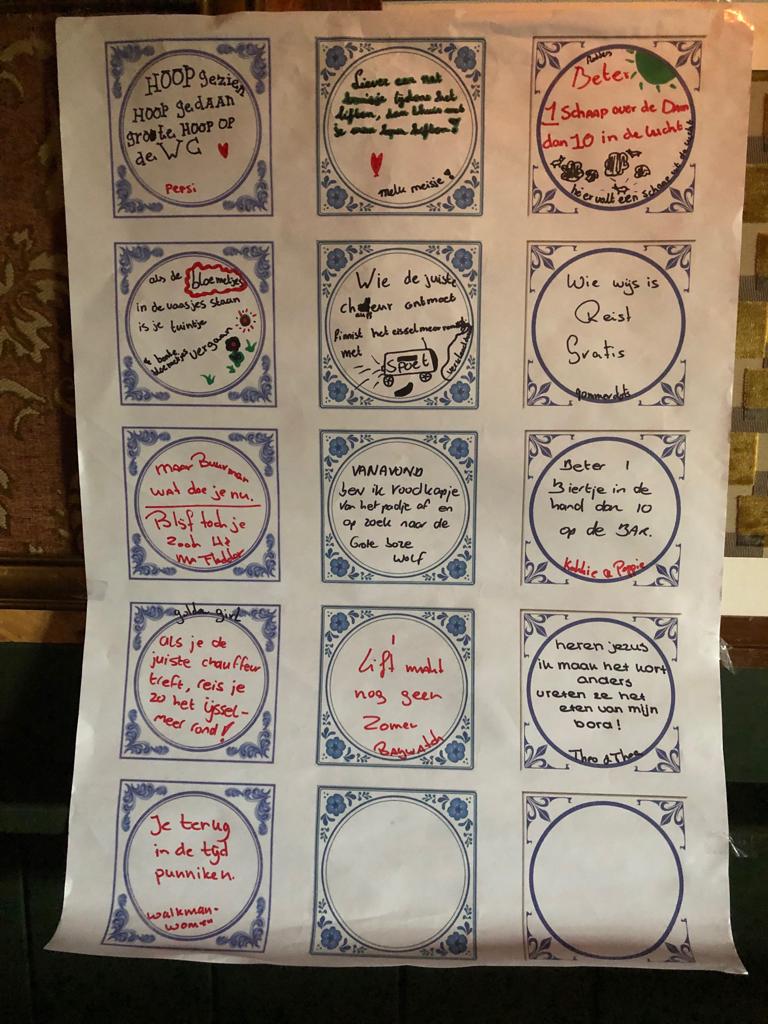 HOOP gezien
HOOP gedaan
groote HOOP op
de WC
Pepsi
Liever een nat
tijdens het
liften, dan thuis met
je een liften!
melk meisje
Beter
1 Schaap over de Dam
dan 10 in de lucht.
hier valt een schaap uit de lucht
als de bloemetjes
in de vaasjes staan
is je tuintje
vergaan
& bonte
bloemetjes
Wie de juiste
chauffeur ontmoet
finnist het eisselmeer
met
Spoet
Wie wijs is
Reist
Gratis
Maar Buurman
wat doe je nu.
Blijf toch je
zooh
Mr Fladder
VANAVOND
ben ik roodkapje
van het padje af en
op zoek naar de
Grote boze
wolf
Beter 1
Biertje in de
hand dan 10
op de BAR.
& Poppie
golden girl
als je de
juiste chauffeur
treft, reis je
zo het ijssel-
meer rond!
1
Lift maakt
nog geen
Zomer
Baywatch
heren jezus
ik maak het kort
anders
vreten ze het
eten van mijn
bord!
Theo & Thea
Je terug
in de tijd
punniken.
walkman-
women